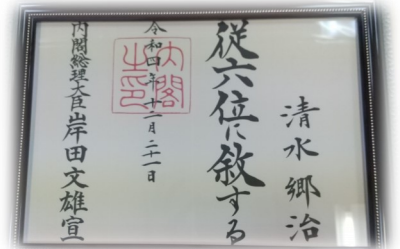 清水郷治
従六位に敘する
令和四年十二月二十一日
内閣之印
内閣総理大臣岸田文雄宣